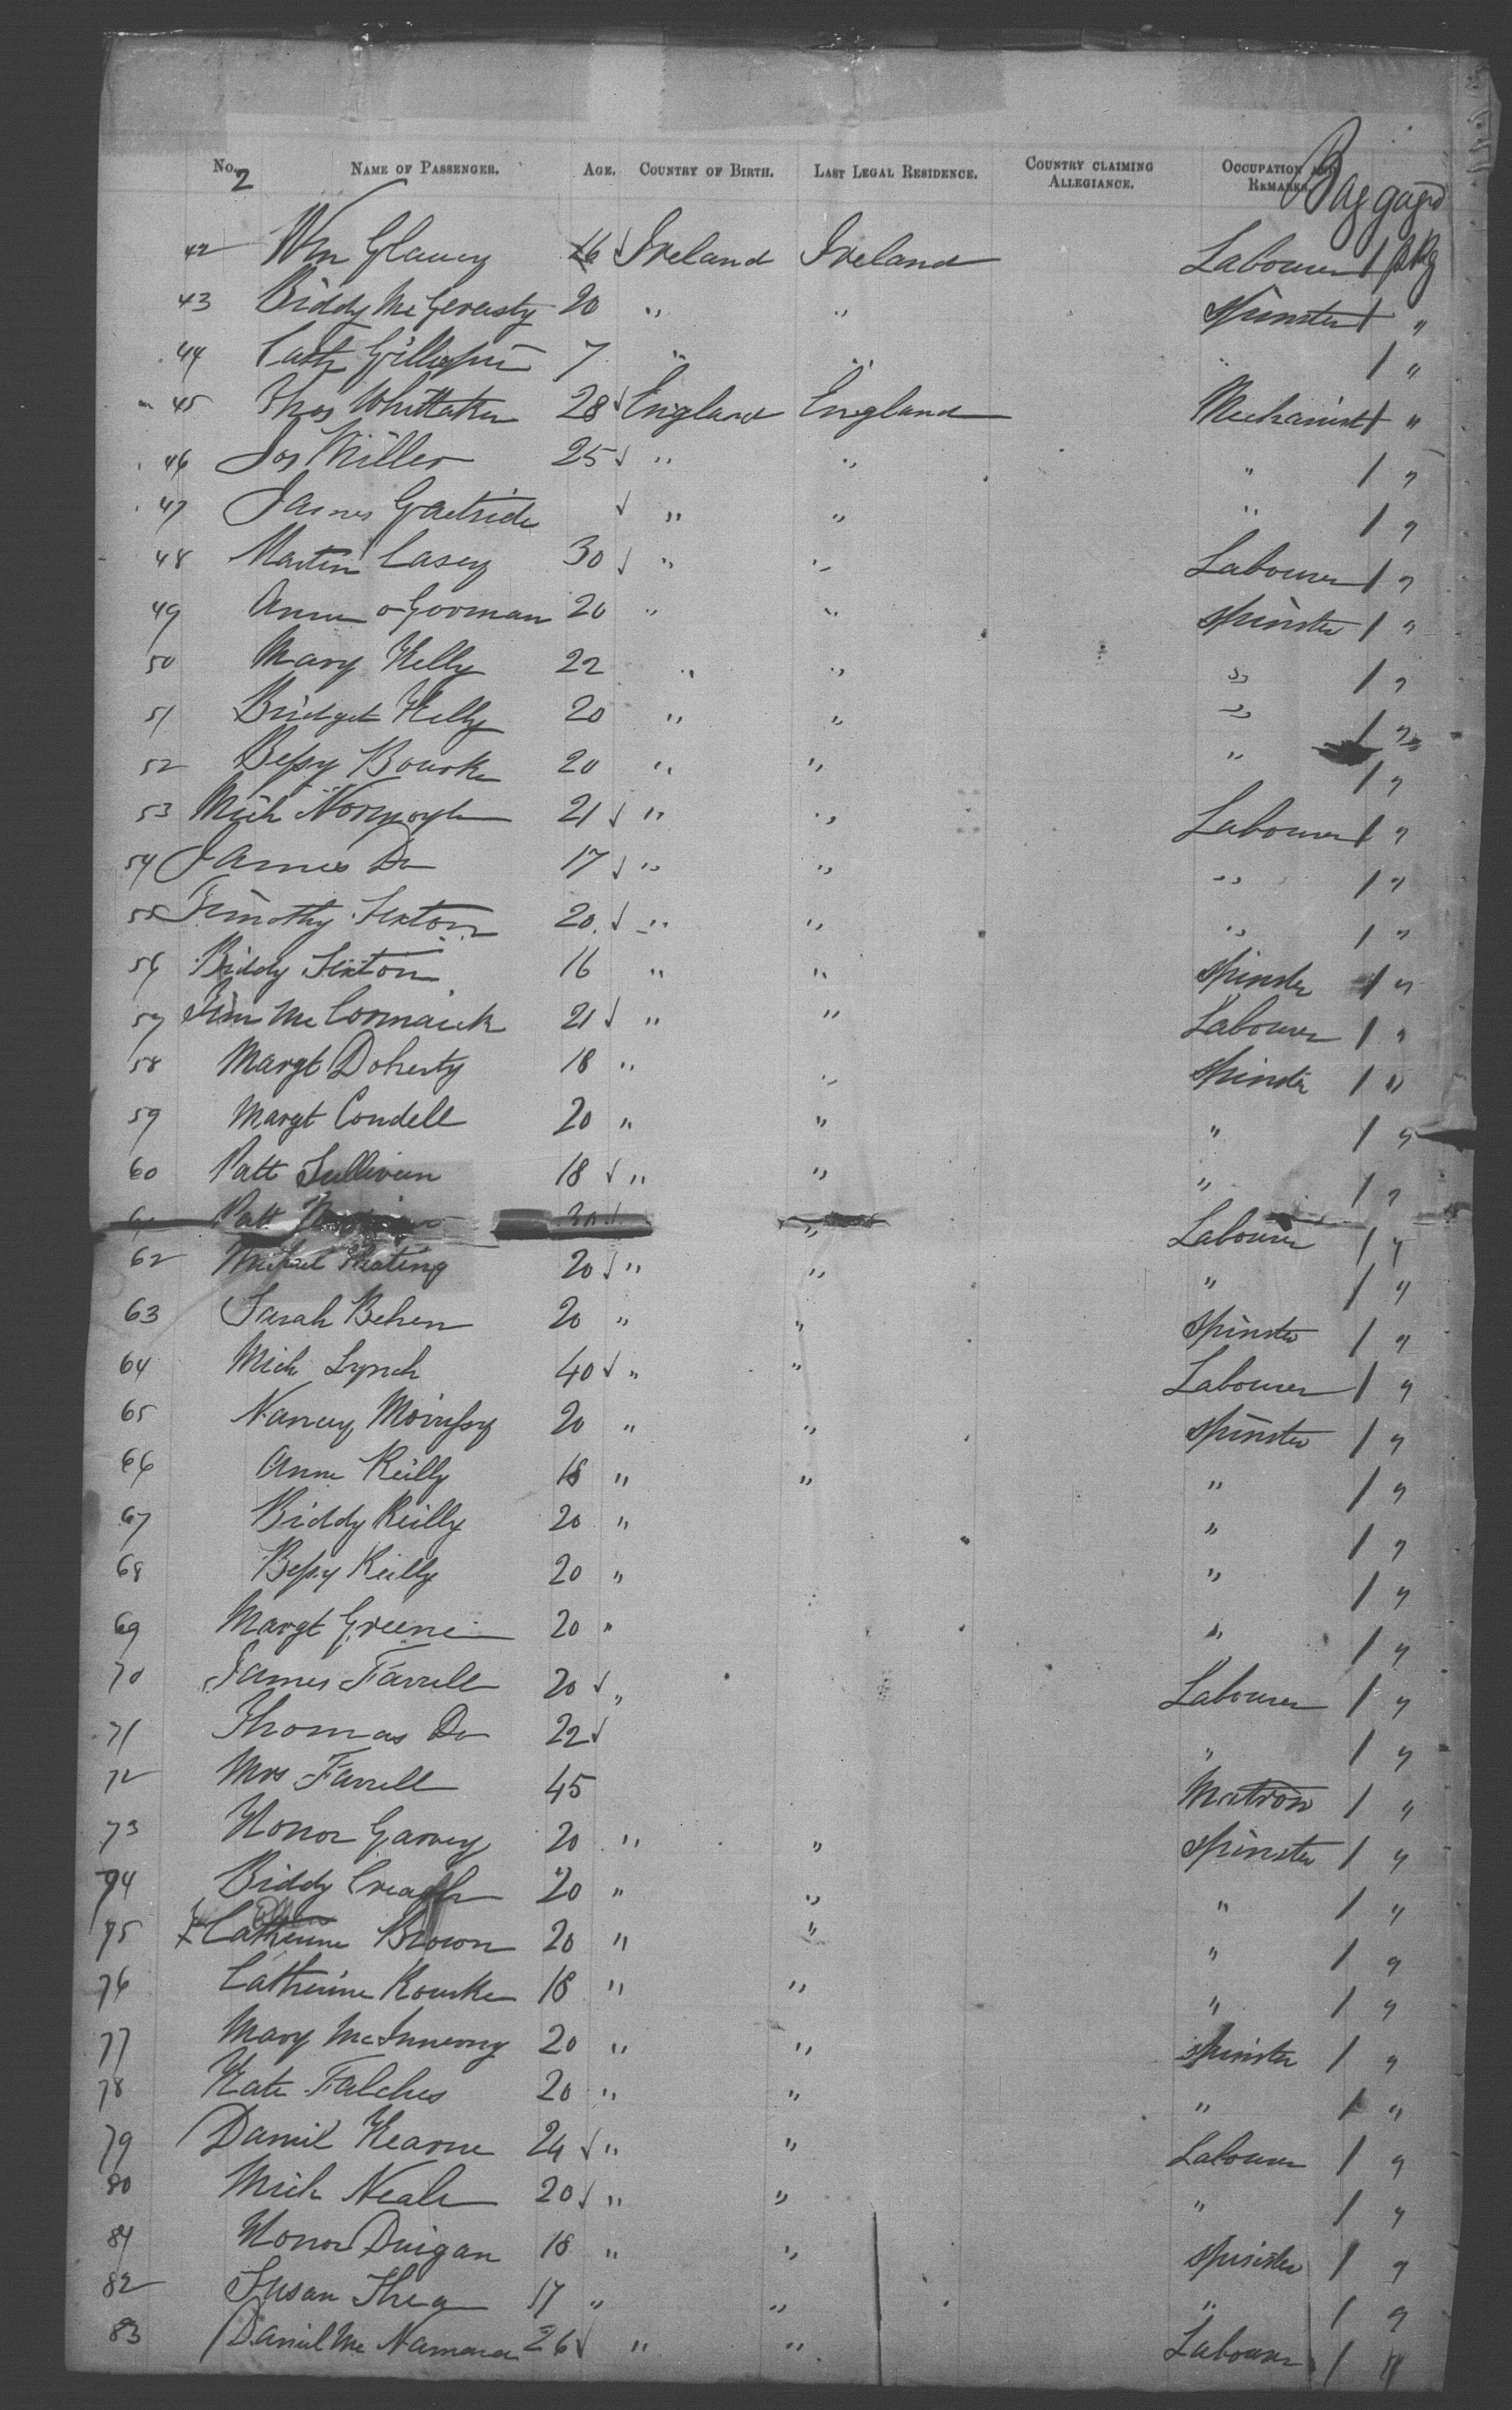 No. NAME OF PASSENGER. AGE. COUNTRY OF BIRTH. LAST LEGAL RESIDENCE. COUNTRY CLAIMING ALLEGIANCE. OCCUPATION AND REMARKS. Baggage
2
42 Wm Glancy 16 Ireland Ireland Labourer 1 pkg
43 Biddy 20 " " Spinster 1 "
44 Cath Gillespie 7 " " " 1 "
45 Thos Whittaker 28 England England Mechanist 1 "
46 Jos Miller 25 " " " 1 "
47 James " " " 1 "
48 Martin Casey 30 " " Labourer 1 "
49 Anne o Gorman 20 " " Spinster 1 "
50 Mary Kelly 22 " " " 1 "
51 Bridget Kelly 20 " " " 1 "
52 Bessy Bourke 20 " " " 1 "
53 Mich 21 " " Labourer 1 "
54 James Do 17 " " " 1 "
55 Timothy Sexton 20 " " " 1 "
56 Biddy Sexton 16 " " Spinster 1 "
57 Mc Cormaick 21 " " Labourer 1 "
58 Margt Doherty 18 " " Spinster 1 "
59 Margt Condell 20 " " " 1 "
60 Patt Sullivan 18 " " " 1 "
Patt " Labourer 1 "
62 Keating 20 " " " 1 "
63 Sarah Behen 20 " " Spinster 1 "
64 Mich Lynch 40 " " Labourer 1 "
65 Nancy Morrissy 20 " " Spinster 1 "
66 Anne Reilly 18 " " " 1 "
67 Biddy Reilly 20 " " 1 "
68 Bessy Reilly 20 " " 1 "
69 Margt Greene 20 " " 1 "
70 James Farrell 20 " Labourer 1 "
71 Thomas Do 22 " 1 "
72 Mrs Farrell 45 Matron 1 "
73 Honor Garvey 20 " " Spinster 1 "
74 Biddy Creagh 20 " " " 1 "
75 Catherine Brown 20 " " " 1 "
76 Catherine Rourke 18 " " " 1 "
77 Mary 20 " " Spinster 1 "
78 Kate 20 " " " 1 "
79 Daniel Kearne 24 " " Labourer 1 "
80 Mich Neale 20 " " " 1 "
81 Honor Duigan 18 " " Spinster 1 "
82 Susan Shea 17 " " " 1 "
83 Daniel Mc Namara 26 " " Labourer 1 "